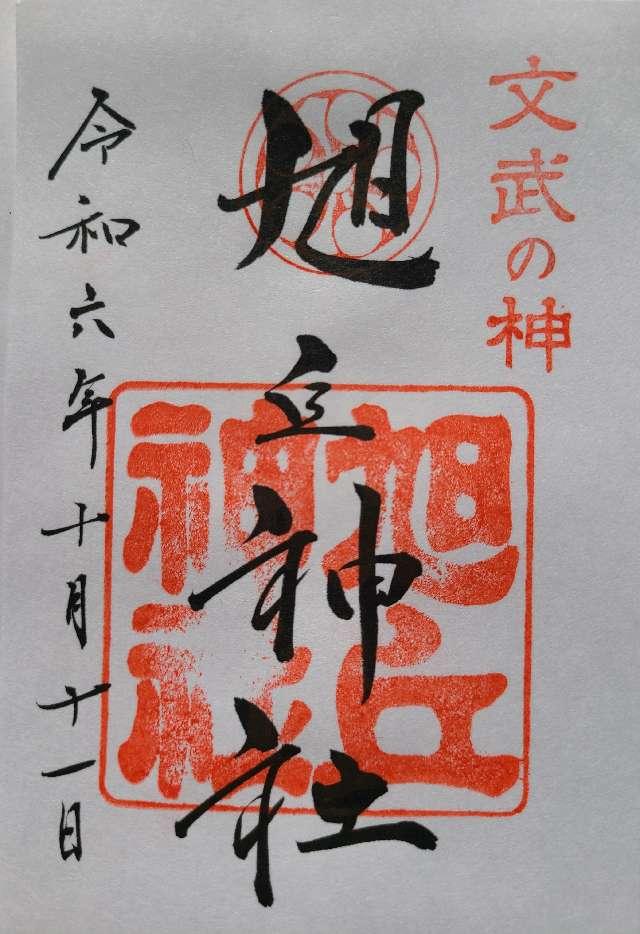 文武の神
旭丘神社
旭丘
神社
令和六年十月十一日